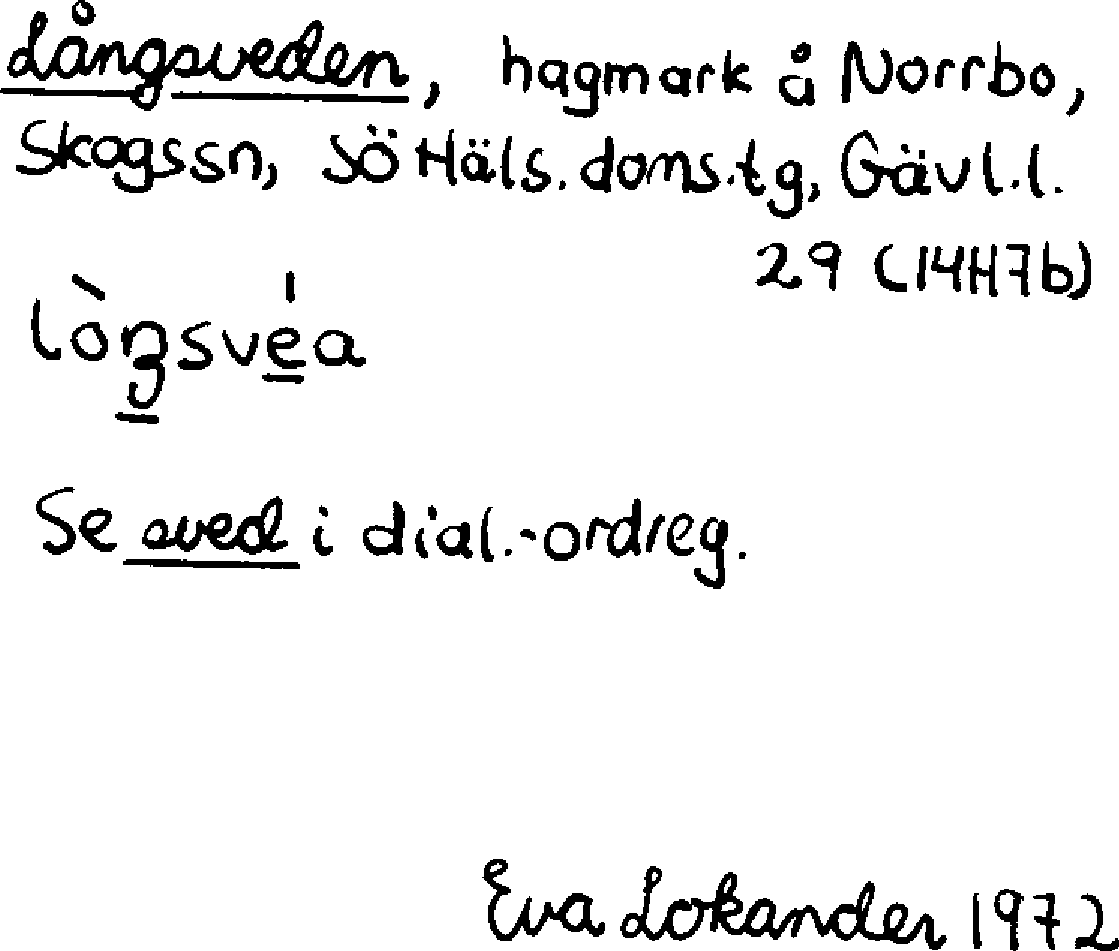 Långsveden, hagmark å Norrbo,
Skogssn, SöHäls.doms.tg, Gävl.l.
29 (14H7b)
lòŋsvéa
Se sved i dial.-ordreg.
Eva Lokander 1972